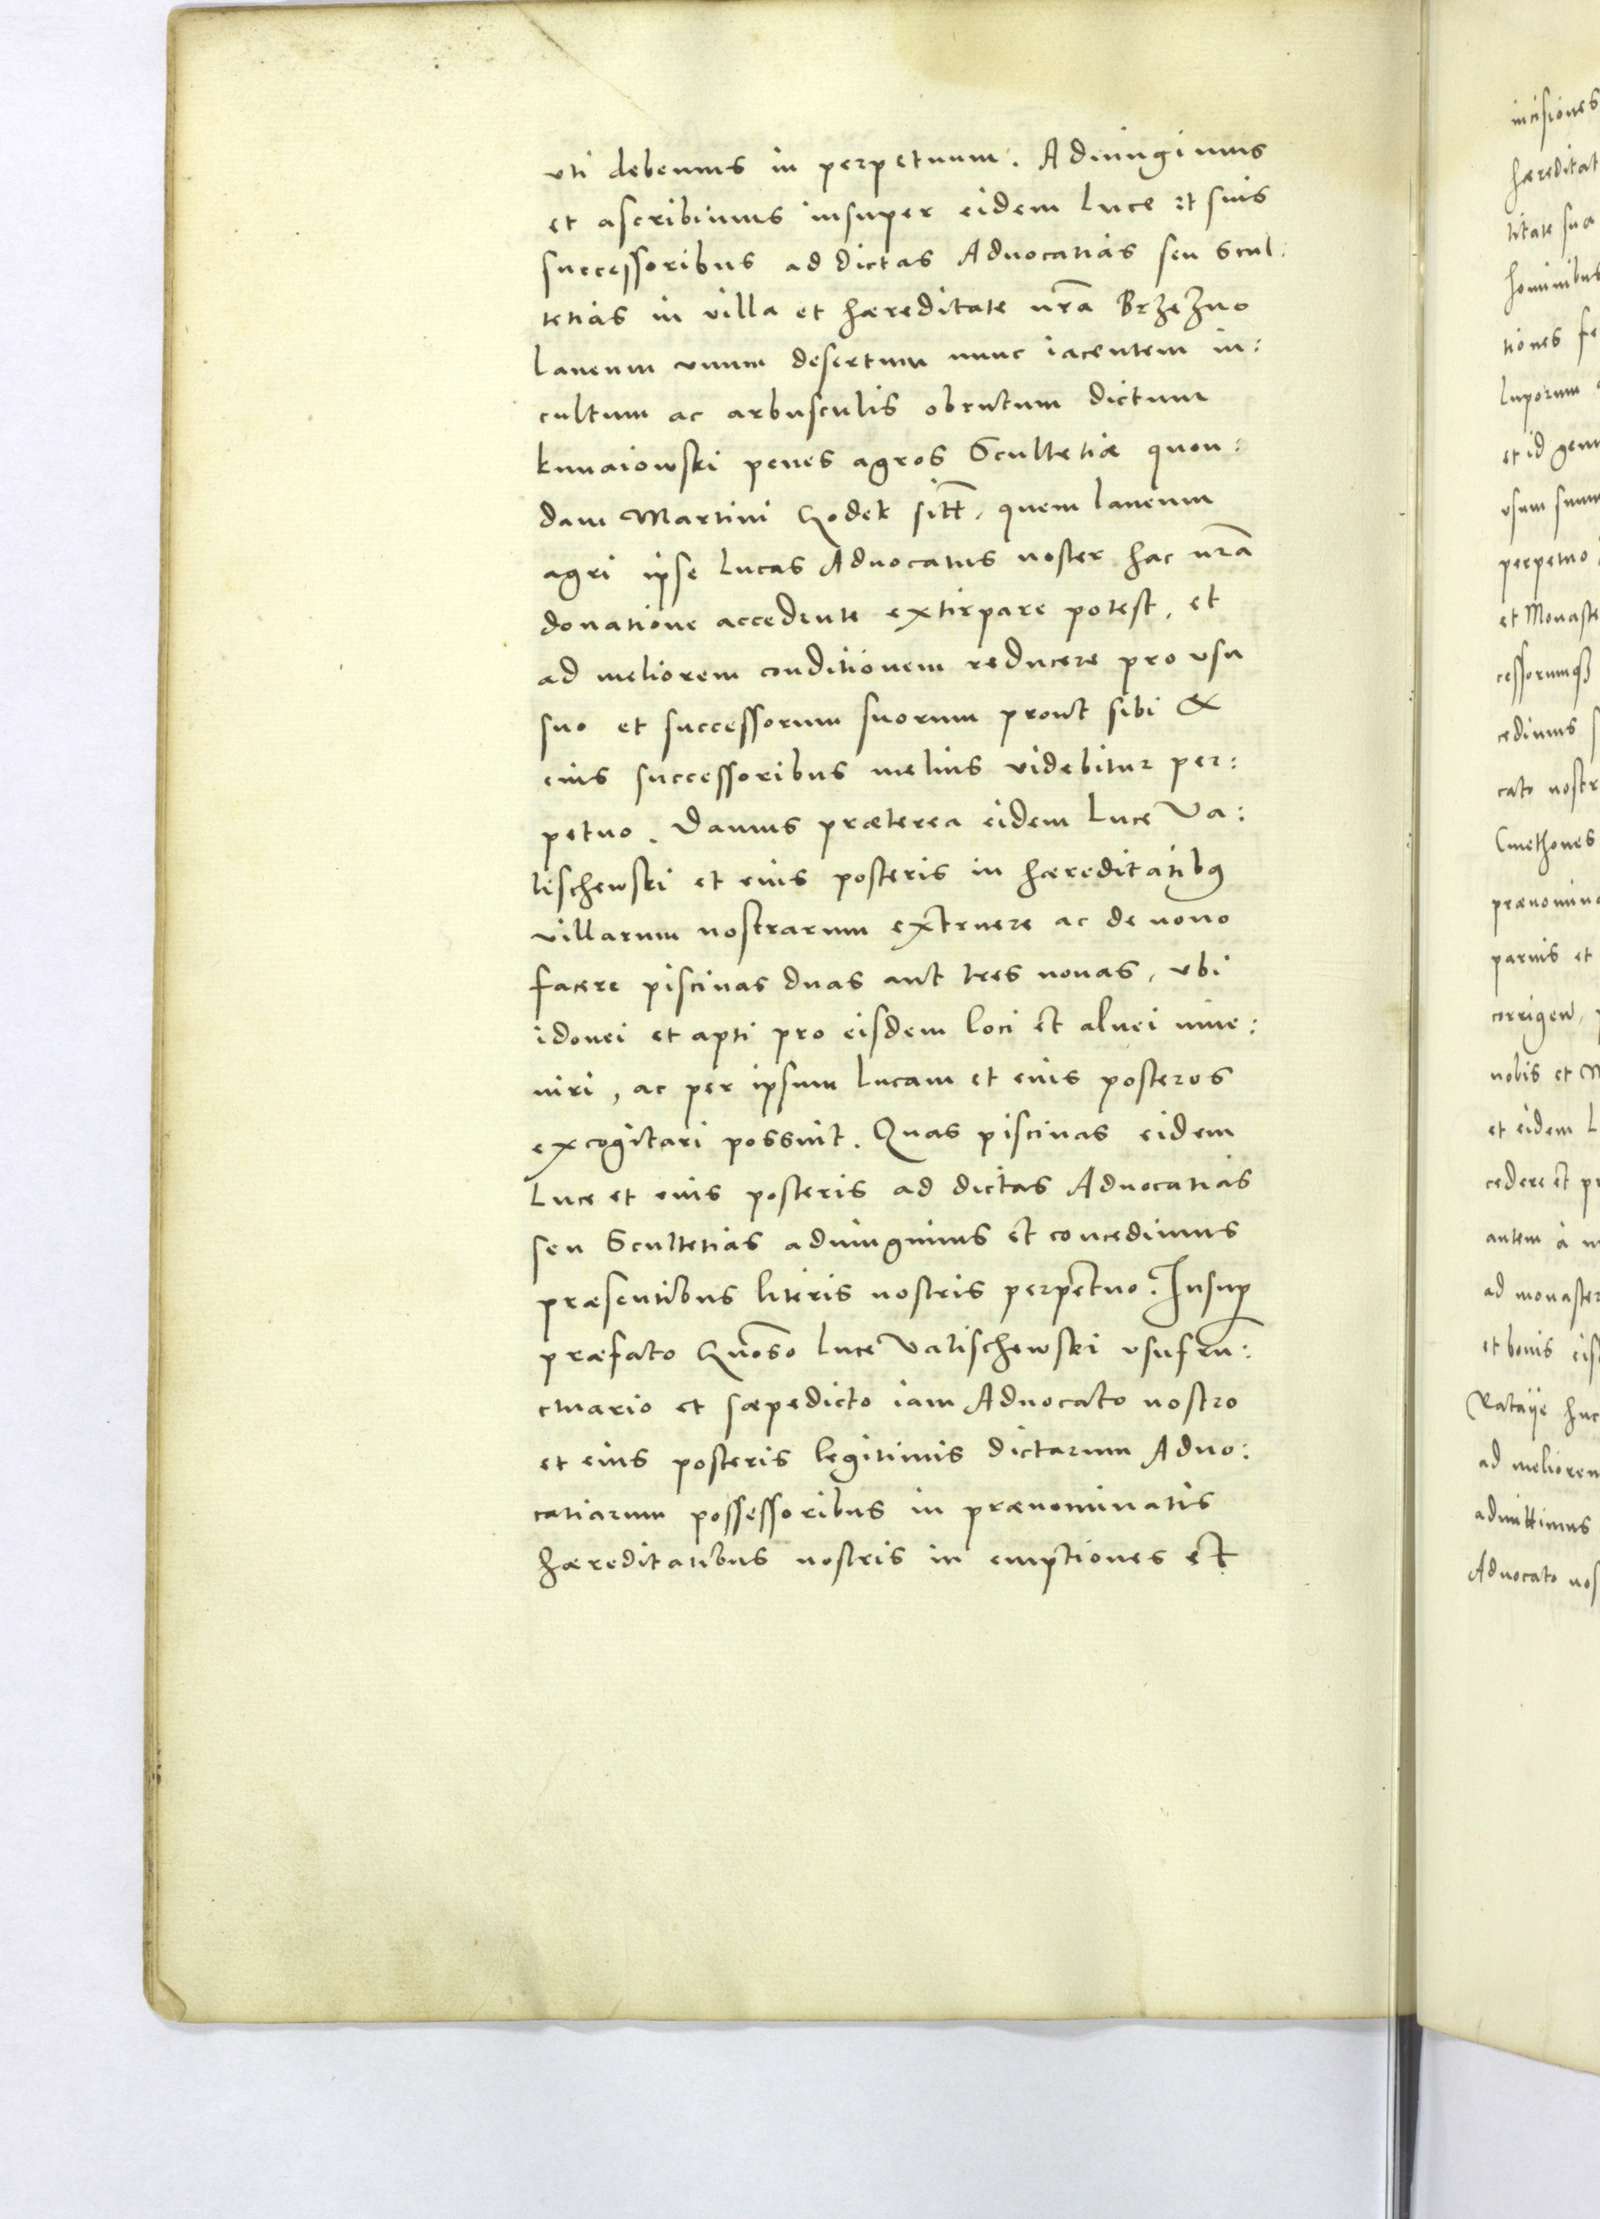 vti debemus in perpetuum. Adiungimus
et ascribimus insuper eidem Luce et suis
successoribus ad dictas Aduocatias seu Scul:
tetias in villa et hæreditate nrã Brzezno
laneum vnum desertum nunc iacentem in:
cultum ac arbusculis obrutum dictum
kunaiowski penes agros Scultetiæ quon:
dam Martini Godek sitt, quem laneum
agri ipse Lucas Aduocatus noster hac nrã
donatione accedente extirpare potest, et
ad meliorem conditionem reducere pro vsu
suo et successorum suorum prout sibi &
eius successoribus melius videbitur per:
petuo. Damus præterea eidem Luce Va:
lischewski et eius posteris in hæreditatibus
villarum nostrarum extruere ac de nouo
facere piscinas duas aut tres nouas, vbi
idonei et apti pro eisdem loci et aluei inue:
niri, ac per ipsum Lucam et eius posteros
excogitari possint. Quas piscinas eidem
Luce et eius posteris ad dictas Aduocatias
seu Scultetias adiungimus et concedimus
præsentibus literis nostris perpetuo. Insup
præfato Gnoso Luce Valischewski vsufru:
ctuario et sæpedicto iam Aduocato nostro
et eius posteris legitimis dictarum Aduo:
catiarum possessoribus in prænominatis
hæreditatibus nostris in emptiones et
incisiones
hæreditat
titate sua
hominibus
tiones fe
luporum
et id gen
vsum suum
perpetuo
et Monaste
cessorumq
cedimus
cato nostr
Cmethones
prænomina
paruis et
corrigen
nobis et M
et eidem L
cedere et pr
autem à
ad monaster
et bonis eis
Rataye huc
ad meliorem
admittimus
Aduocato nos